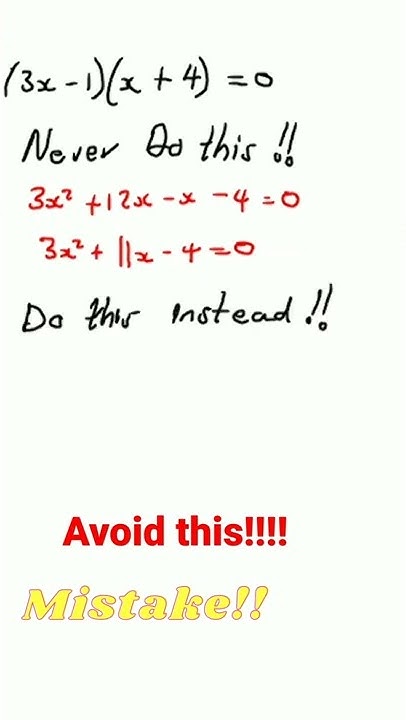 (3x-1)(x+4)=0
Never Do this!!
3x²+12x-x-4=0
3x²+11x-4=0
Do this instead!!
Avoid this!!!!
Mistake!!